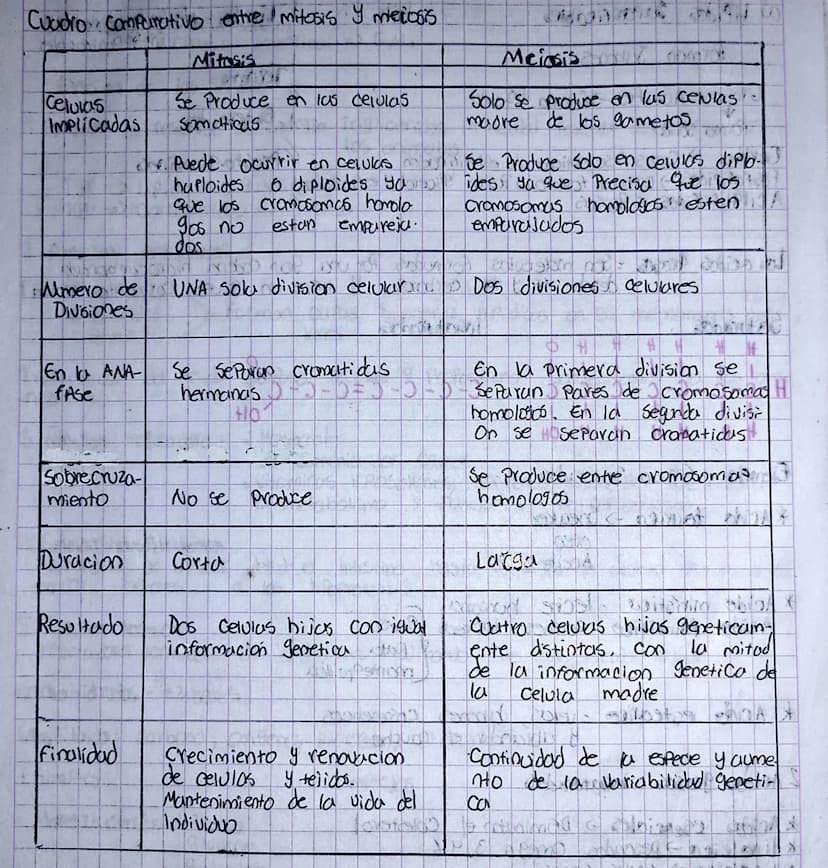 Cuadro comparativo entre mitosis y meiosis
Mitosis
Meiosis
Celulas
Implicadas
Se Produce en las celulas
somaticas
Puede ocurrir en celulas
haploides o diploides ya
que los cromosomas homolo
gos no estan empareja-
dos
Solo se produce en las celulas
madre de los gametos
Se Produce solo en celulas diplo-
ides ya que Precisa que los
cromosomas homologos esten
emparajados
Numero de
Divisiones
UNA sola division celular
Dos divisiones celulares
En la ANA-
fASe
Se separan cromatidas
hermanas
En la primera division se
separan Pares de cromosomas
homologos. En la segunda divisi-
On se separan cromatidas
Sobrecruza-
miento
No se produce
Se Produce entre cromosomas
homologos
Duracion
Corta
Larga
Resultado
Dos celulas hijas con igual
informacion genetica
Cuatro celulas hijas geneticam-
ente dstintas, con la mitad
de la informacion genetica de
la celula madre
Finalidad
Crecimiento y renovacion
de celulas y tejidos.
Mantenimiento de la vida del
Individuo
Continuidad de la espece y aume
nto de la variabilidad geneti-
ca